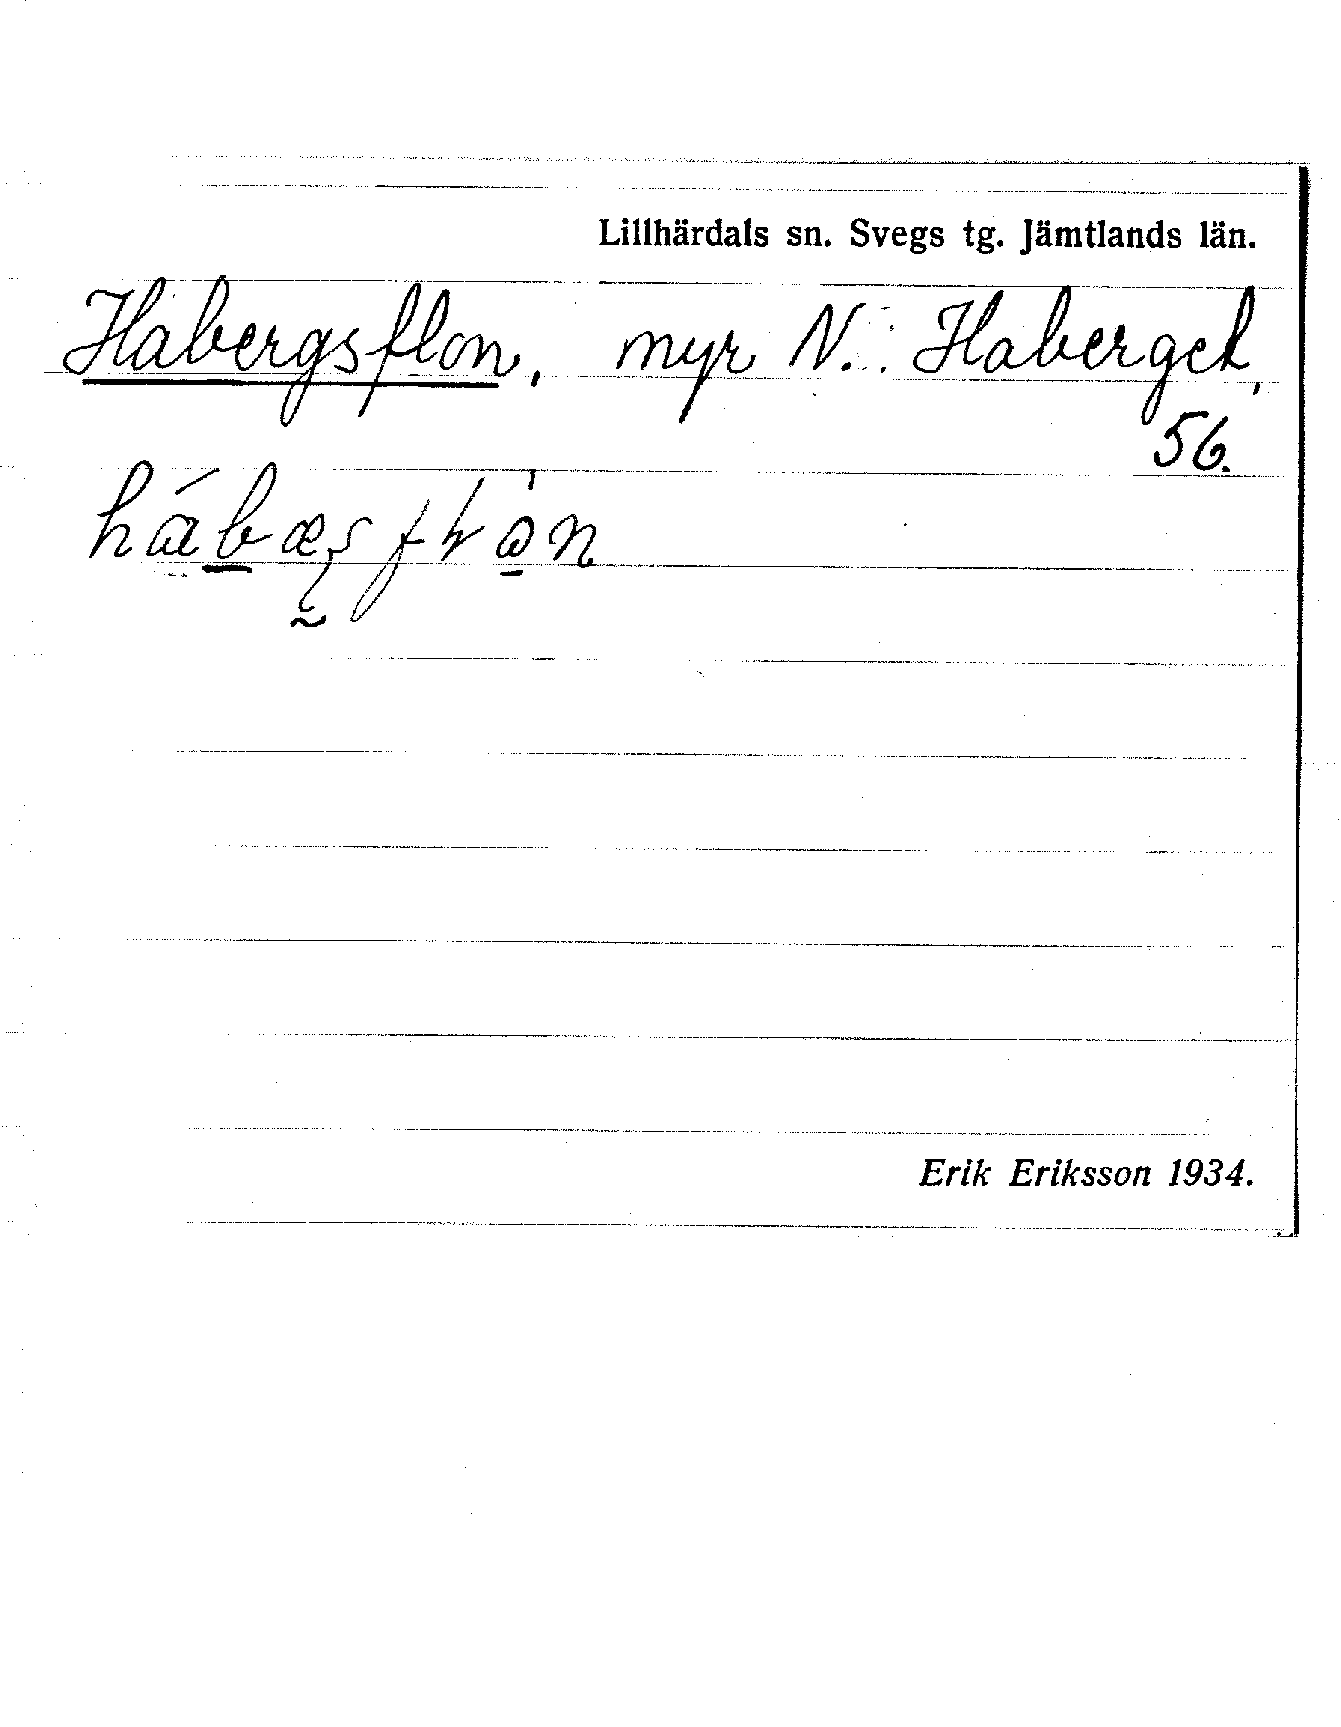 Lillhärdals sn. Svegs tg. Jämtlands län.
Habergsflon, myr N. Haberget,
56.
Erik Eriksson 1934.